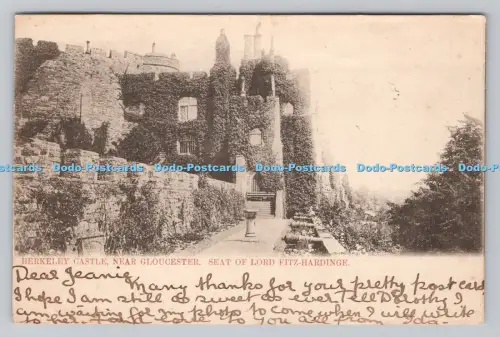 Dodo-Postcards Dodo-Postcards Dodo-Postcards Dodo-Postcards Dodo-Postcards
BERKELEY CASTLE, NEAR GLOUCESTER. SEAT OF LORD FITZ-HARDINGE.
Dear Jeanie Many thanks for your pretty post card
I hope I am still as sweet as ever Tell Dorothy I
am waiting for my photo to come when I will write
to her to you all from